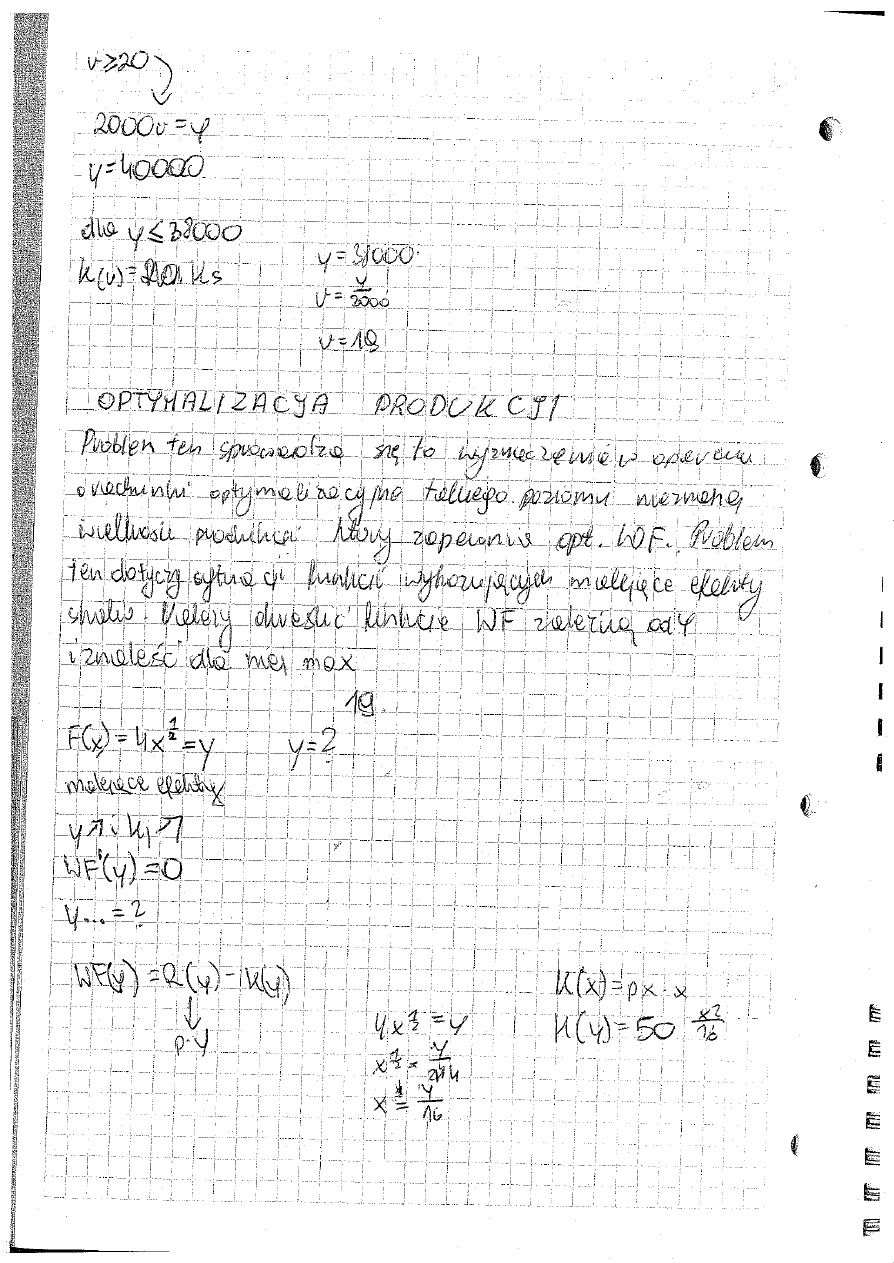 v≥20
2000v=y
y=40000
dla y≤38000
y=38000
K(v)= Ks
v=y/2000
v=19
OPTYMALIZACJA PRODUKCJI
Problem ten sprowadza się to wyznaczenie w oparciu
o rachunki optymalizacyjne takiego poziomu nieznanej
wielkości produkcji który zapewnia opt. WF. Problem
ten dotyczy sytuacji funkcji wykazujących malejące efekty
skali. Należy określić funkcję WF zależną od y
i znaleść dla niej max
19
F(x)=4x^½=y y=?
malejące efekty
y↗ i K₁↗
WF'(y)=0
y...=?
WF(y)=R(y)-K(y) K(x)=px·x
p·y
4x^½=y K(y)=50 x²/16
x^½=y/4
x=y/16